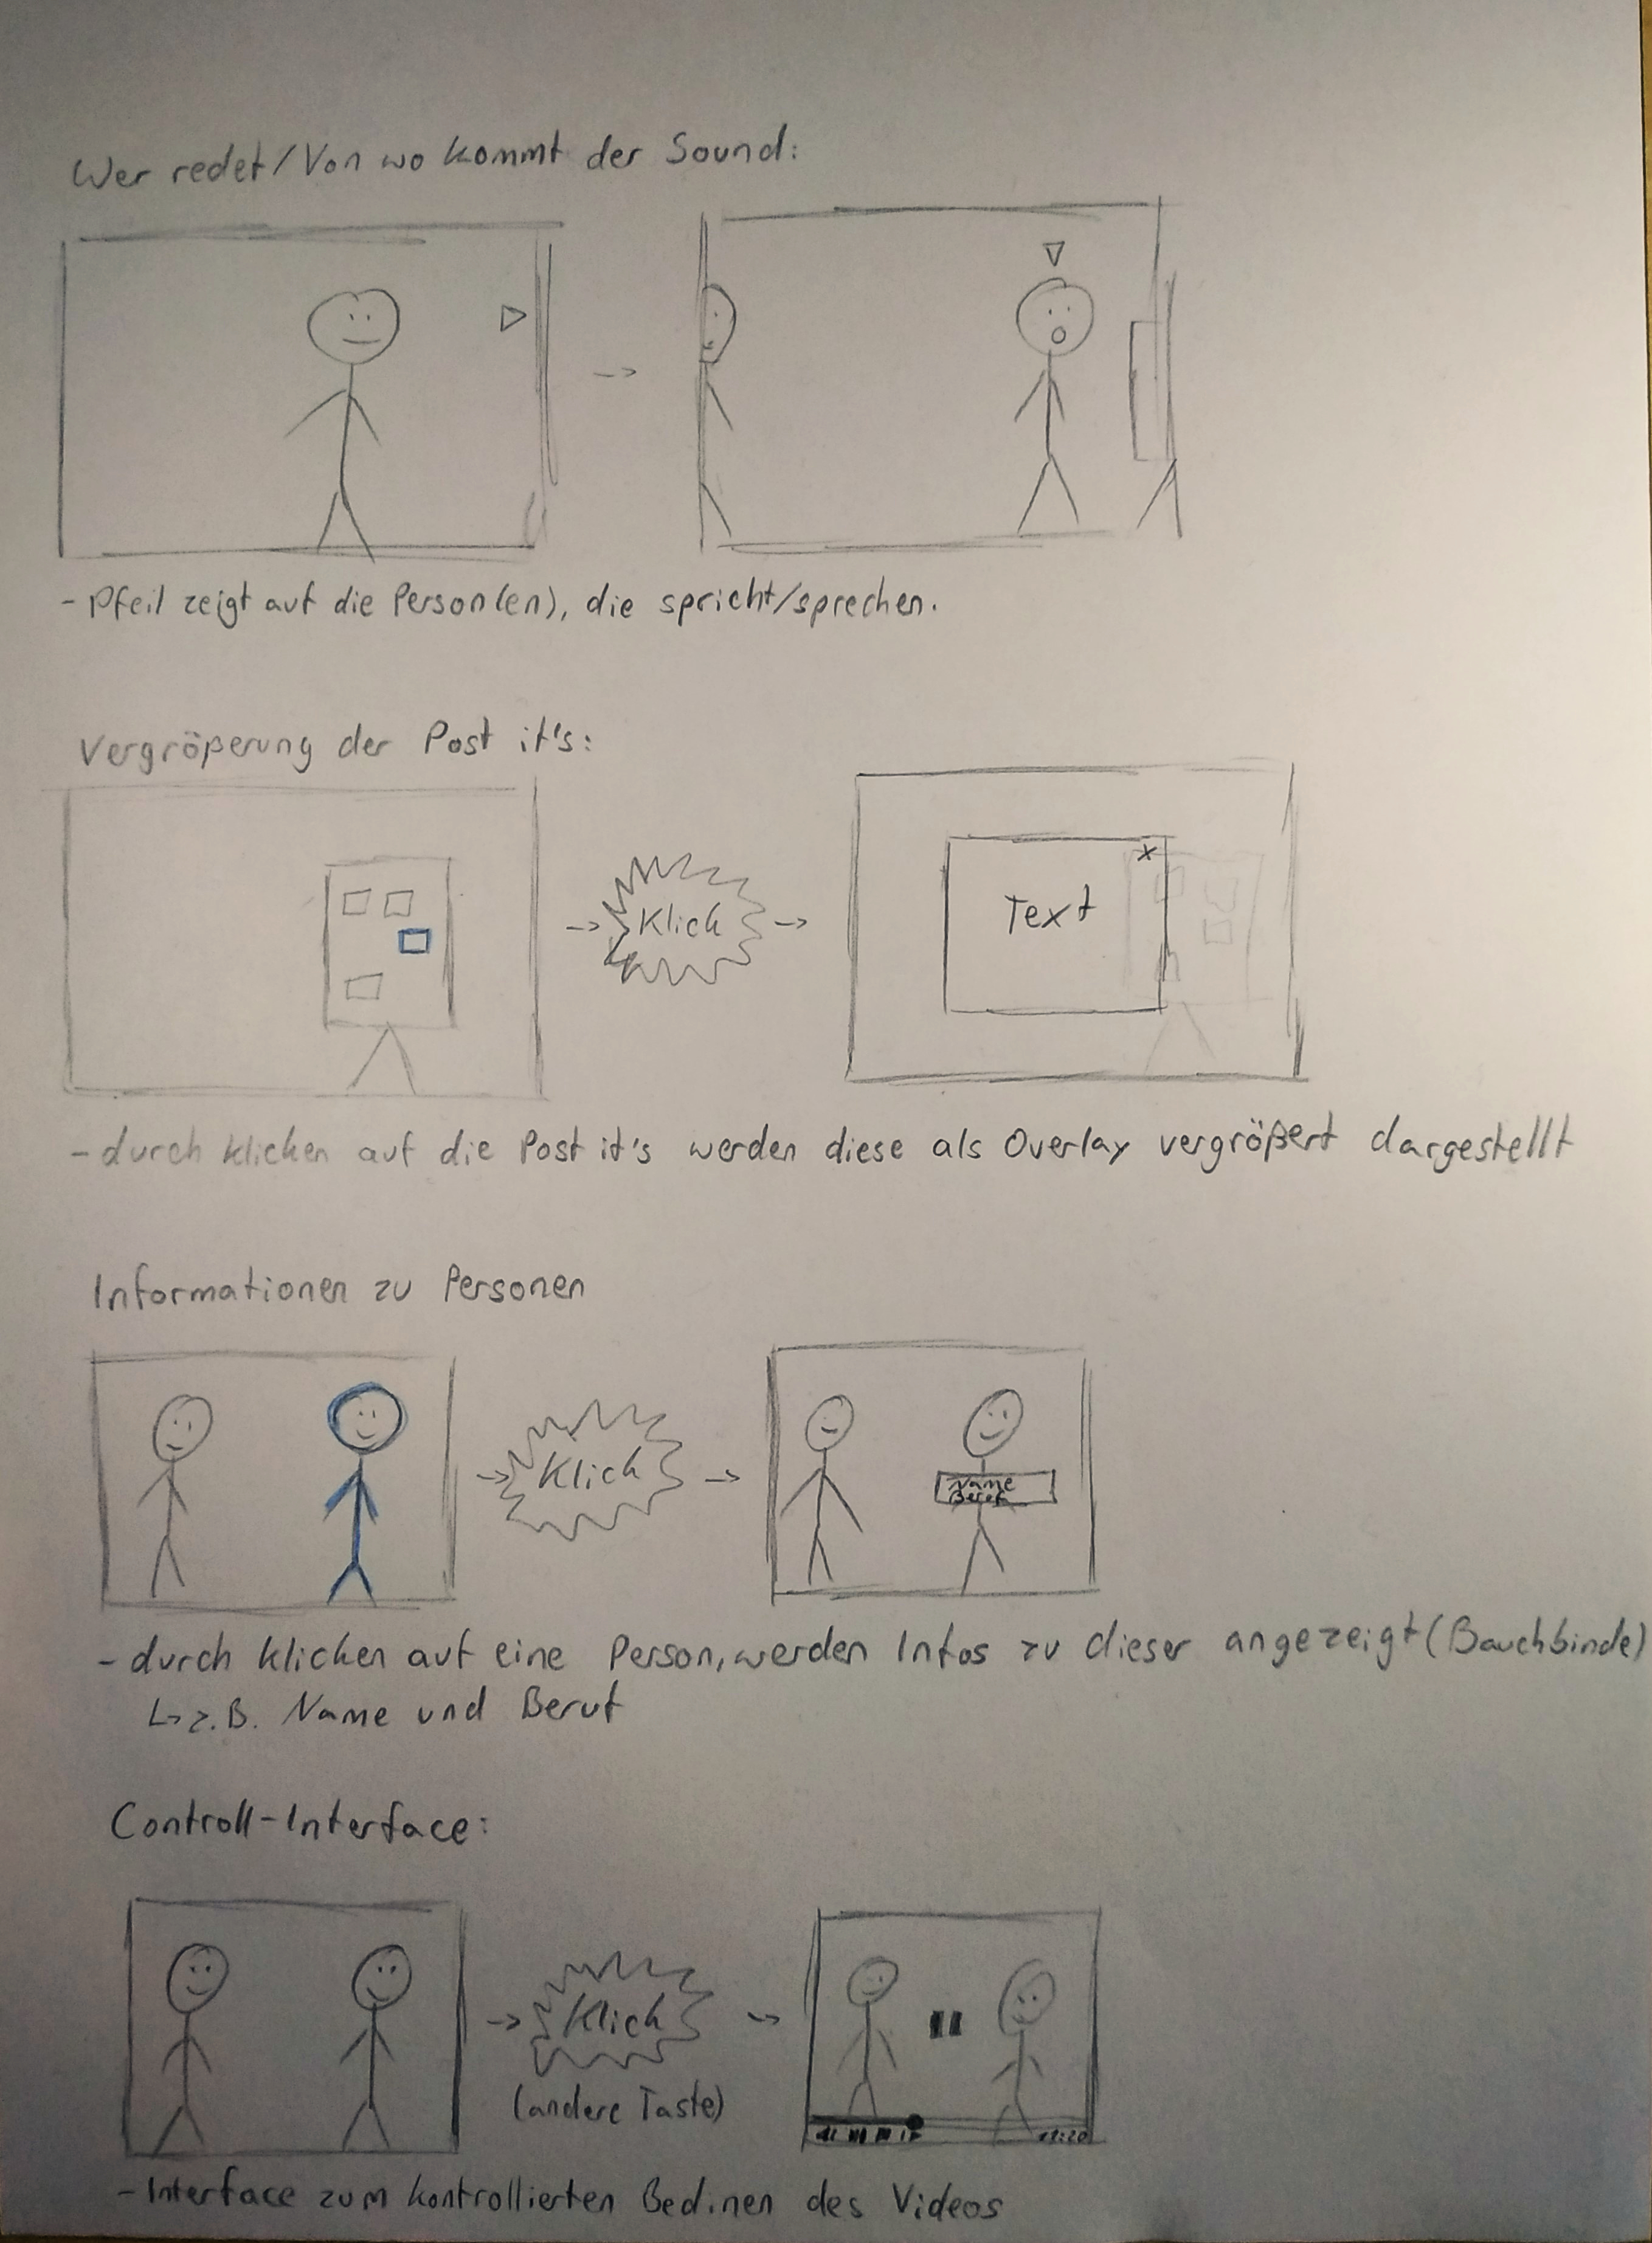 Wer redet/Von wo kommt der Sound:
->
- Pfeil zeigt auf die Person(en), die spricht/sprechen.
Vergrößerung der Post it's:
-> Klick ->
Text
x
- durch klicken auf die Post it's werden diese als Overlay vergrößert dargestellt
Informationen zu Personen
-> Klick ->
Name
Beruf
- durch klicken auf eine Person, werden Infos zu dieser angezeigt (Bauchbinde)
↳ z.B. Name und Beruf
Controll-Interface:
-> Klick ->
(andere Taste)
- Interface zum kontrollierten Bedinen des Videos